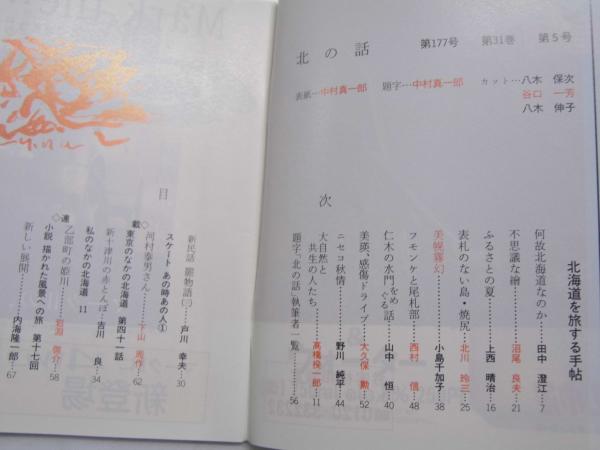 北の話 第177号 第31巻 第5号
表紙…中村真一郎 題字…中村真一郎 カット…八木 保次
谷口 一芳
八木 伸子
目 次
北海道を旅する手帖
何故北海道なのか……田中 澄江…7
不思議な繪……沼尾 良夫…21
ふるさとの夏……上西 晴治…16
表札のない島・焼尻……北川 玲三…25
美幌霧幻……小島千加子…38
フモンケと尾札部……西村 信…48
仁木の水門をめぐる話……山中 恒…40
美瑛・感傷ドライブ……大久保 勲…52
ニセコ秋情……野川 純平…44
大自然と共生の人たち……高橋揆一郎…11
題字「北の話」執筆者一覧……56
新民話 龍物語(三)……戸川 幸夫…30
スケート あの時あの人①
河村泰男さん……下山 秀作…62
◇連載◇
東京のなかの北海道 第四十一話
新十津川の赤とんぼ……吉川 良…34
私のなかの北海道 11
乙部町の姫川……岩淵 啓介…58
小説 描かれた風景への旅 第十七回
新しい展開……内海隆一郎…67